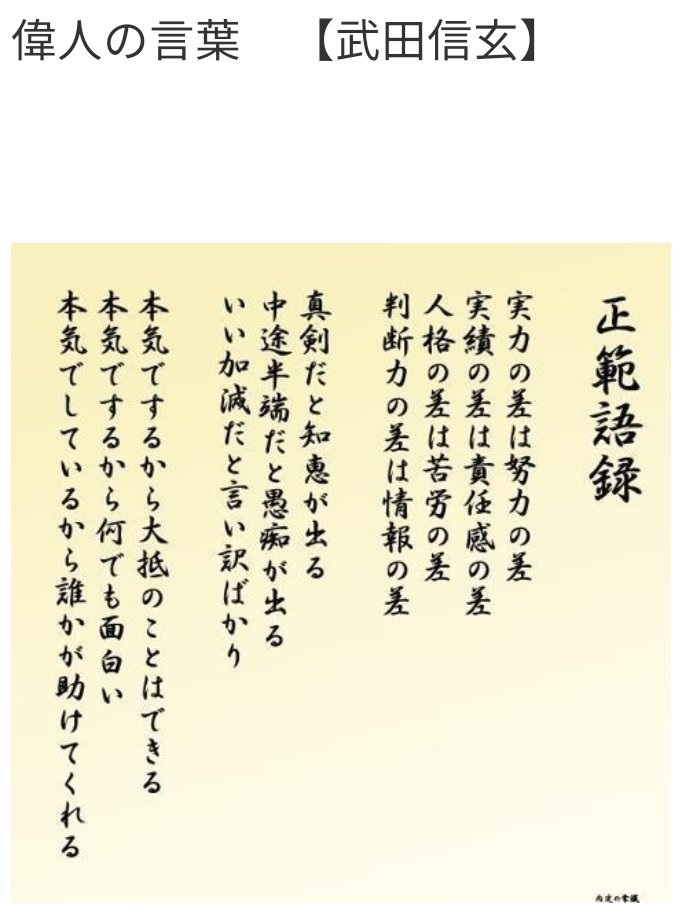 偉人の言葉　【武田信玄】
正範語録
実力の差は努力の差
実績の差は責任感の差
人格の差は苦労の差
判断力の差は情報の差
真剣だと知恵が出る
中途半端だと愚痴が出る
いい加減だと言い訳ばかり
本気でするから大抵のことはできる
本気でするから何でも面白い
本気でしているから誰かが助けてくれる
内定の常識